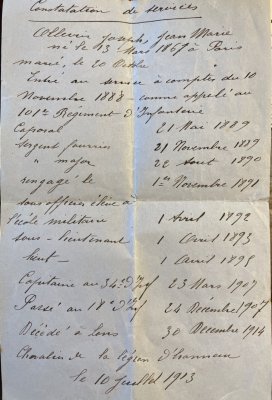 Constatation de services
Ollivier Joseph, Jean Marie
né le 13 Mars 1867 à Paris
marié, le 20 Octobre
Entré au service à compter du 10
Novembre 1888 - comme appelé au
101e Régiment d'Infanterie
Caporal 21 Mai 1889
Sergent fourrier 21 Novembre 1889
" major 22 Aout 1890
rengagé le 1er Novembre 1891
sous officier élève à
l'école militaire 1 Avril 1892
sous-lieutenant 1 Avril 1893
lieut- 1 Avril 1895
Capitaine au 34e d'Inf 23 Mars 1907
Passé au 18e d'Inf 24 Décembre 1907
Décédé à Lens 30 Décembre 1914
Chevalier de la légion d'honneur
le 10 Juillet 1913